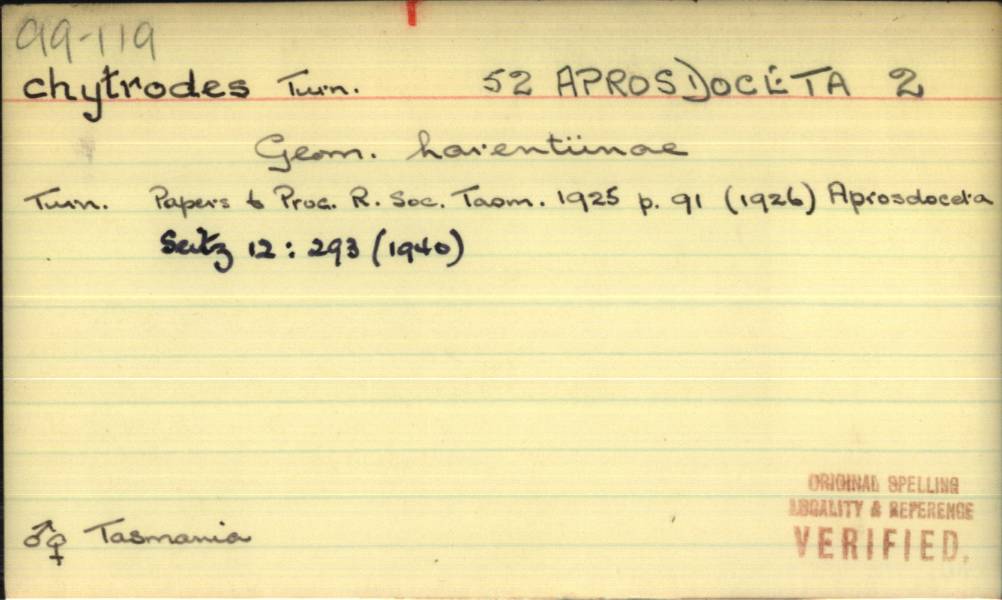 99-119
chytrodes Turn. 52 APROSDOCETA 2
Geom. larentiinae
Turn. Papers & Proc. R. Soc. Tasm. 1925 p. 91 (1926) Aprosdoceta
Seitz 12 : 293 (1940)
♂♀ Tasmania
ORIGINAL SPELLING
LOCALITY & REFERENCE
VERIFIED.